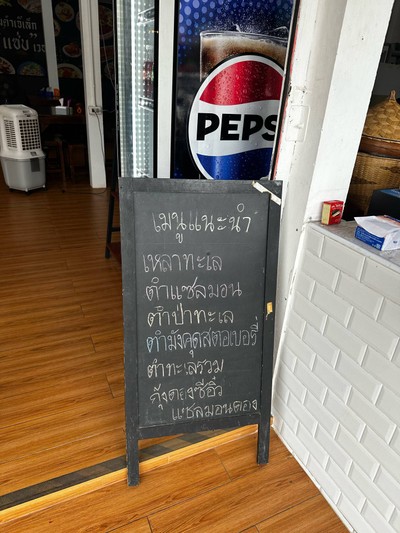 แซ่บ
PEPS
เมนูแนะนำ
เหลาทะเล
ตำแซลมอน
ตำป่าทะเล
ตำมังคุดสตอเบอรี่
ตำทะเลรวม
กุ้งดองซีอิ๊ว
แซลมอนดอง